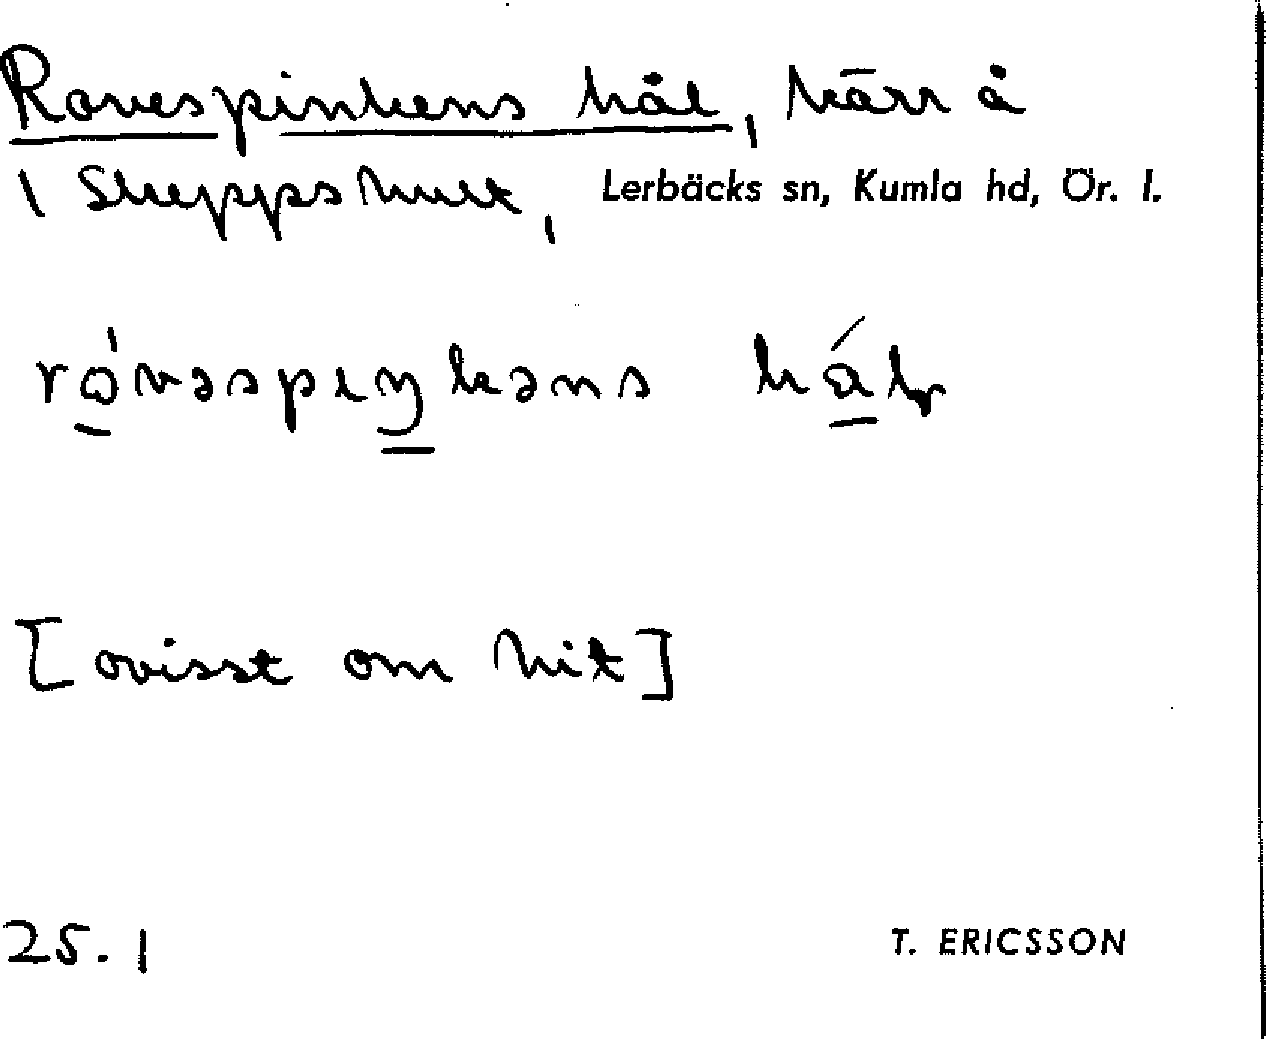 Rovespinkens hål, kärr å
1 Skeppshult, Lerbäcks sn, Kumla hd, Ör. l.
ró̱vəspɩŋ̱kəns há̱ɭ
[ovisst om hit]
25.1 T. ERICSSON